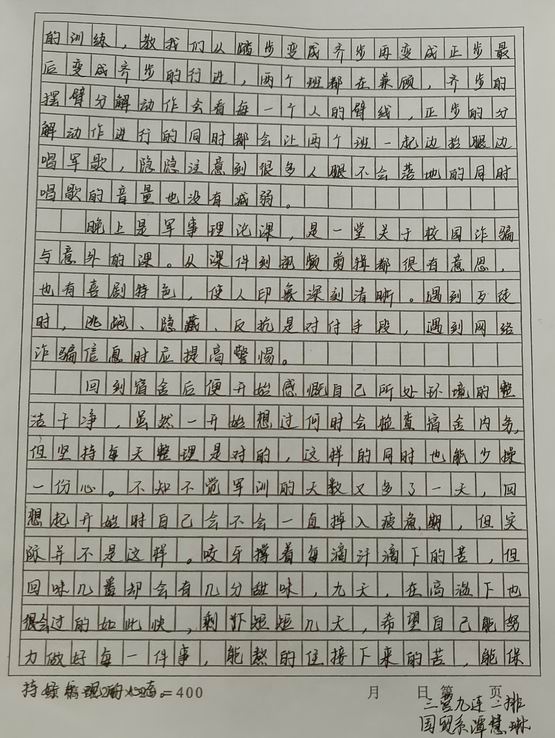 的训练，教我们从踏步变成齐步再变成正步最
后变成齐步的行进，两个班都在兼顾，齐步的
摆臂分解动作会看每一个人的臂线，正步的分
解动作进行的同时都会让两个班一起边抬腿边
唱军歌，隐隐注意到很多人腿不会落地的同时
唱歌的音量也没有减弱。
晚上是军事理论课，是一堂关于校园诈骗
与意外的课。从课件到视频剪辑都很有意思，
也有喜剧特色，使人印象深刻清晰。遇到歹徒
时，逃跑、隐藏、反抗是对付手段，遇到网络
诈骗信息时应提高警惕。
回到宿舍后便开始感慨自己所处环境的整
洁干净，虽然一开始想过何时会检查宿舍内务，
但坚持每天整理是对的，这样的同时也能少操
一份心。不知不觉军训的天数又多了一天，回
想起开始时自己会不会一直掉入疲惫期，但实
际并不是这样。咬牙撑着每滴汗滴下的苦，但
回味几番却会有几分甜味，九天，在高温下也
会过的如此快，剩下短短几天，希望自己能努
力做好每一件事，能熬的住接下来的苦，能保
持 的心态。=400
月 日 第 页
三营九连二排
国贸系 谭慧琳